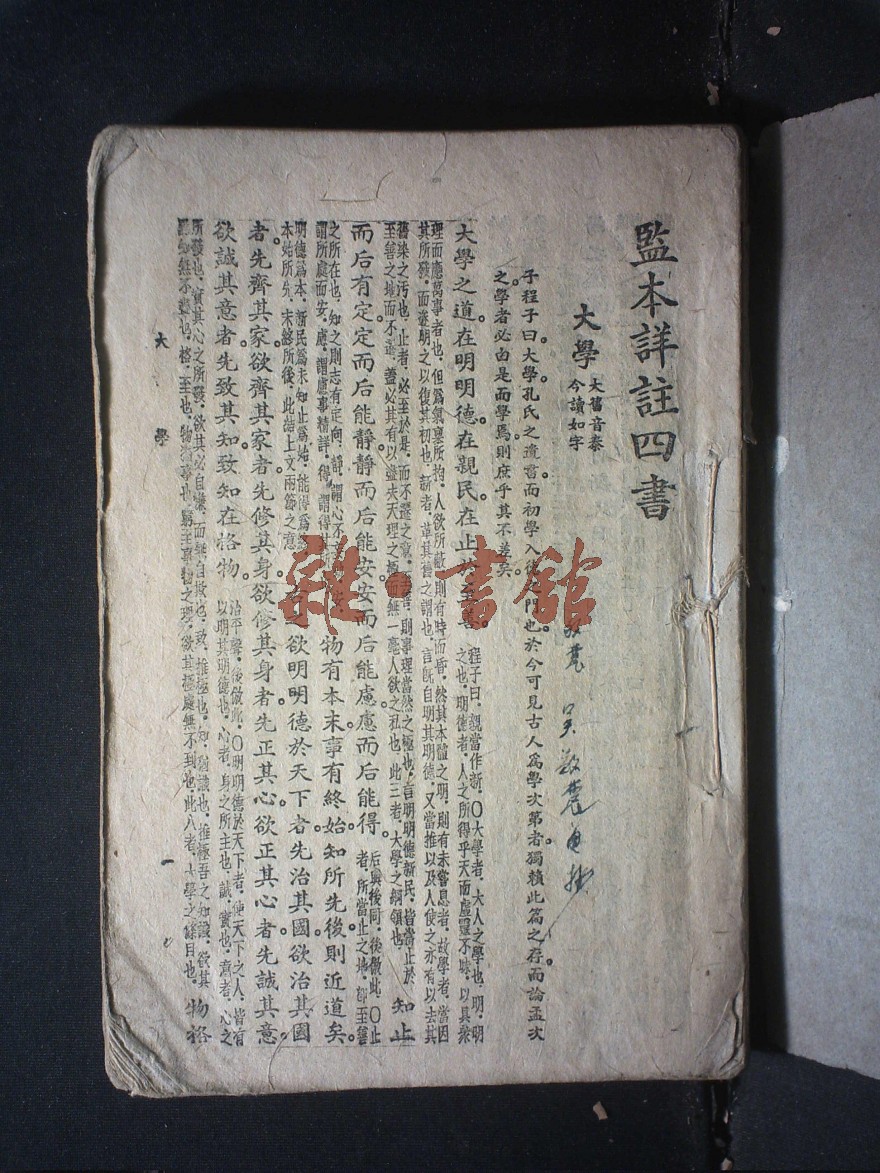 監本詳註四書
大學
大舊音泰
今讀如字
子程子曰。大學。孔氏之遺書。而初學入德之門也。於今可見古人爲學次第者。獨賴此篇之存。而論孟次
之。學者必由是而學焉。則庶乎其不差矣。
大學之道。在明明德。在親民。在止於至善。
程子曰。親當作新。〇大學者。大人之學也。明。明
之也。明德者。人之所得乎天。而虛靈不昧。以具衆
理而應萬事者也。但爲氣稟所拘。人欲所蔽。則有時而昏。然其本體之明。則有未嘗息者。故學者當因
其所發。而遂明之。以復其初也。新者。革其舊之謂也。言旣自明其明德。又當推以及人。使之亦有以去其
舊染之汚也。止者。必至於是而不遷之意。至善。則事理當然之極也。言明明德新民。皆當止於
至善之地而不遷。蓋必其有以盡夫天理之極。而無一毫人欲之私也。此三者。大學之綱領也。
知止
而后有定。定而后能靜。靜而后能安。安而后能慮。慮而后能得。
后與後同。後倣此。〇止
者。所當止之地。卽至善
之所在也。知之則志有定向。靜。謂心不
謂所處而安。慮。謂慮事精詳。得。謂得其所
物有本末。事有終始。知所先後。則近道矣。
明德爲本。新民爲末。知止爲始。能得爲終。
本始所先。末終所後。此結上文兩節之意。
之欲明明德於天下者。先治其國。欲治其國
者。先齊其家。欲齊其家者。先修其身。欲修其身者。先正其心。欲正其心者。先誠其意。
欲誠其意者。先致其知。致知在格物。
治平聲。後倣此。〇明明德於天下者。使天下之人。皆有
以明其明德也。心者。身之所主也。誠。實也。意者。心之
所發也。實其心之所發。欲其必自慊。而無自欺也。致。推極也。知。猶識也。推極吾之知識。欲其
所知無不盡也。格。至也。物。猶事也。窮至事物之理。欲其極處無不到也。此八者。大學之條目也。
物格
大學
一
雜·書館